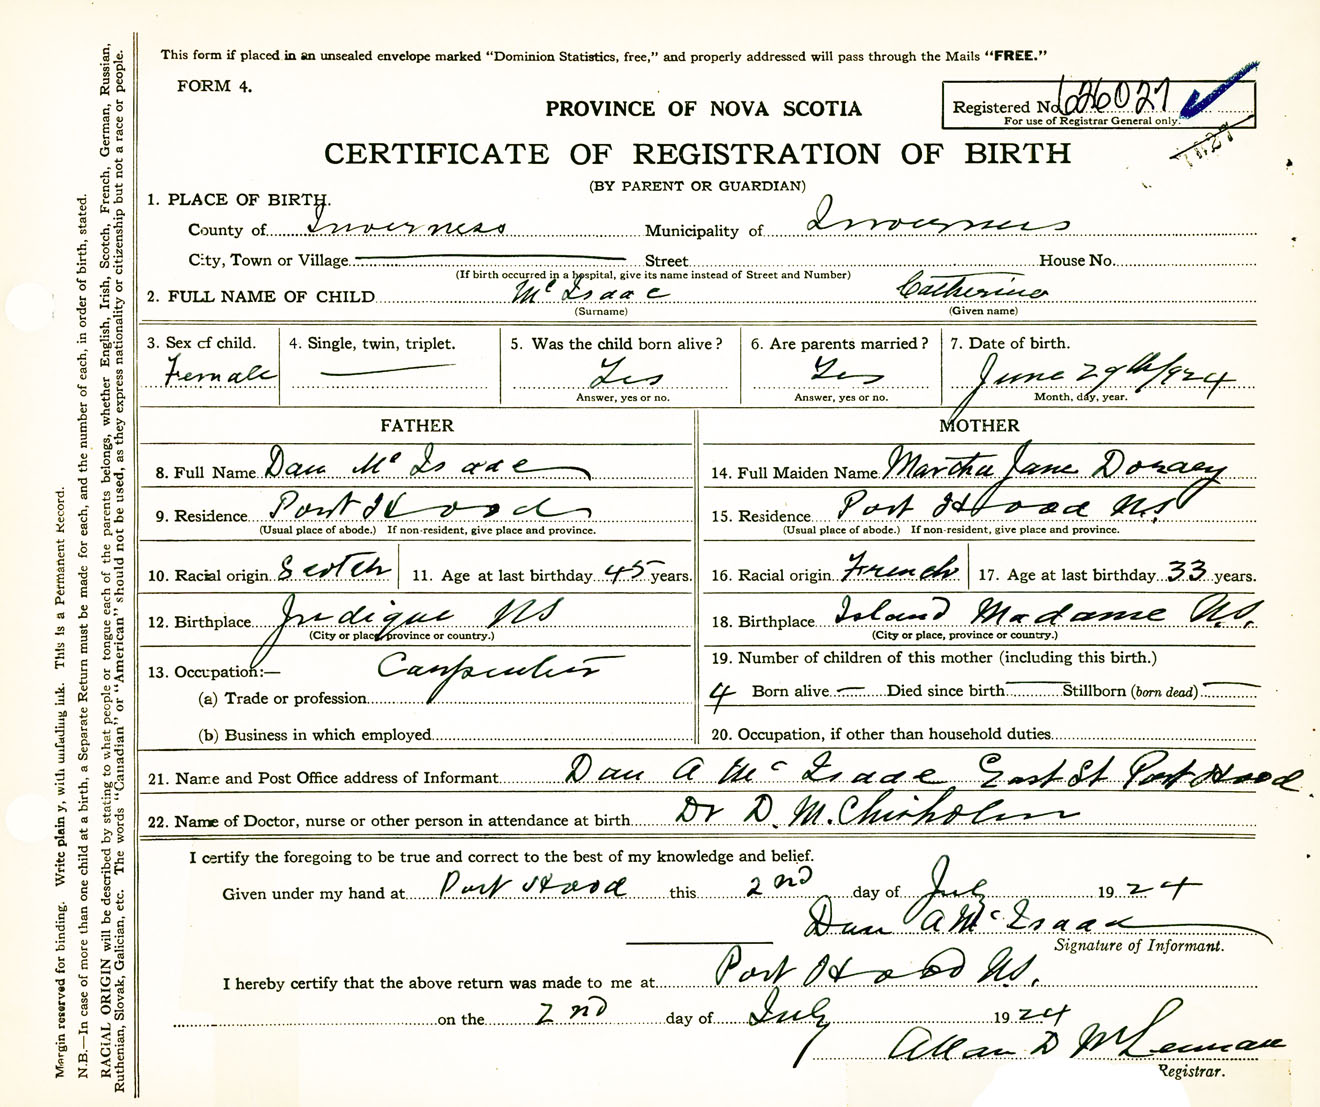 This form if placed in an unsealed envelope marked "Dominion Statistics, free," and properly addressed will pass through the Mails "FREE."
FORM 4.
PROVINCE OF NOVA SCOTIA
Registered No. 626027
For use of Registrar General only.
CERTIFICATE OF REGISTRATION OF BIRTH
(BY PARENT OR GUARDIAN)
1. PLACE OF BIRTH.
County of Inverness Municipality of Inverness
City, Town or Village Street House No.
(If birth occurred in a hospital, give its name instead of Street and Number)
2. FULL NAME OF CHILD Mc Isaac Catherine
(Surname) (Given name)
3. Sex of child. 4. Single, twin, triplet. 5. Was the child born alive? 6. Are parents married? 7. Date of birth.
Female — Yes Yes June 29th 1924
Answer, yes or no. Answer, yes or no. Month, day, year.
FATHER MOTHER
8. Full Name Dan Mc Isaac 14. Full Maiden Name Martha Jane Doraey
9. Residence Port Hood 15. Residence Port Hood N.S.
(Usual place of abode.) If non-resident, give place and province. (Usual place of abode.) If non-resident, give place and province.
10. Racial origin Scotch 11. Age at last birthday 45 years. 16. Racial origin French 17. Age at last birthday 33 years.
12. Birthplace Judique NS 18. Birthplace Island Madame N.S.
(City or place, province or country.) (City or place, province or country.)
13. Occupation:— Carpenter 19. Number of children of this mother (including this birth.)
(a) Trade or profession 4 Born alive — Died since birth — Stillborn (born dead) —
(b) Business in which employed 20. Occupation, if other than household duties
21. Name and Post Office address of Informant Dan A Mc Isaac East St Port Hood.
22. Name of Doctor, nurse or other person in attendance at birth Dr D. M. Chisholm
I certify the foregoing to be true and correct to the best of my knowledge and belief.
Given under my hand at Port Hood this 2nd day of July 1924
Dan A Mc Isaac
Signature of Informant.
I hereby certify that the above return was made to me at Port Hood N.S.
on the 2nd day of July 1924
Allan D McLennan
Registrar.
Margin reserved for binding. Write plainly, with unfading ink. This is a Permanent Record.
N.B.—In case of more than one child at a birth, a Separate Return must be made for each, and the number of each, in order of birth, stated.
RACIAL ORIGIN will be described by stating to what people or tongue each of the parents belongs, whether English, Irish, Scotch, French, German, Russian,
Ruthenian, Slovak, Galician, etc. The words "Canadian" or "American" should not be used, as they express nationality or citizenship but not a race or people.